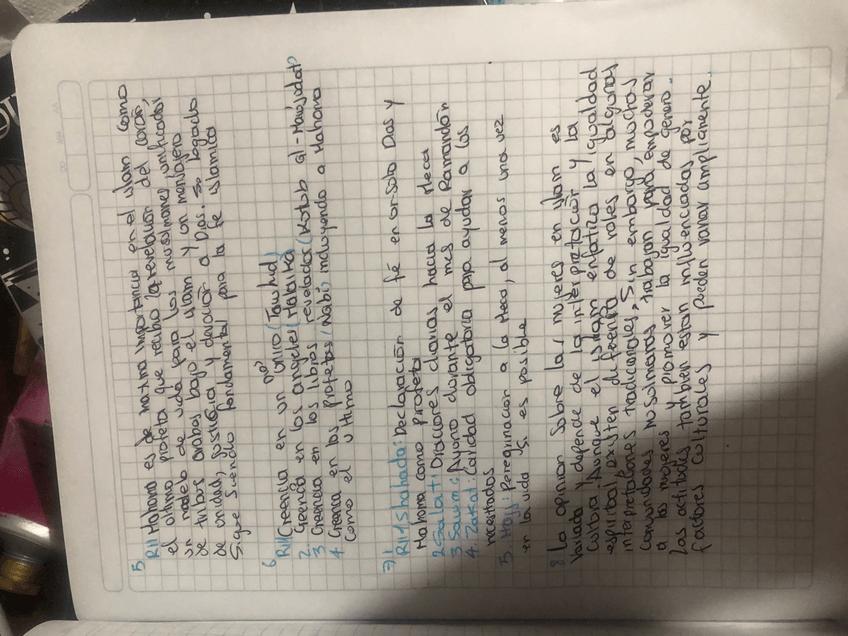 5 R// Mahoma es de maxima importancia en el islam como
el ultimo profeta que recibio la revelacion del Corán,
un modelo de vida para los musulmanes unificador
de tribus arabes bajo el islam y un mensajero
de unidad, justicia y devoción a Dios. su legado
sigue siendo fundamental para la fe islamica
6 R// Creencia en un único (Tawhid)
2. Creencia en los angeles (Malaika)
3 Creencia en los libros revelados (Kutub al-
4 Creencia en los profetas (Nabi) incluyendo a Mahoma
como el ultimo
7) R// 1 Shahada: Declaración de fé en un solo Dios y
Mahoma como profeta
2 Salat: Oraciones diarias hacia la Meca
3 Sawm: Ayuno durante el mes de Ramandán
4. Zakat: Caridad obligatoria para ayudar a los
necesitados
5. Hajj: Peregrinacion a la Meca, al menos una vez
en la vida si es posible
8 La opinion sobre las mujeres en islam es
variada y depende de la interpretación y la
cultura, Aunque el enfatica la igualdad
espiritual, existen diferencia de roles en algunas
interpretaciones tradicionales, Sin embargo, muchas
comunidades musulmanas trabajan para empoderar
a las mujeres y promover la igualdad de genero.
Las actitudes tambien estan influenciadas por
factores culturales y pueden variar ampliamente.